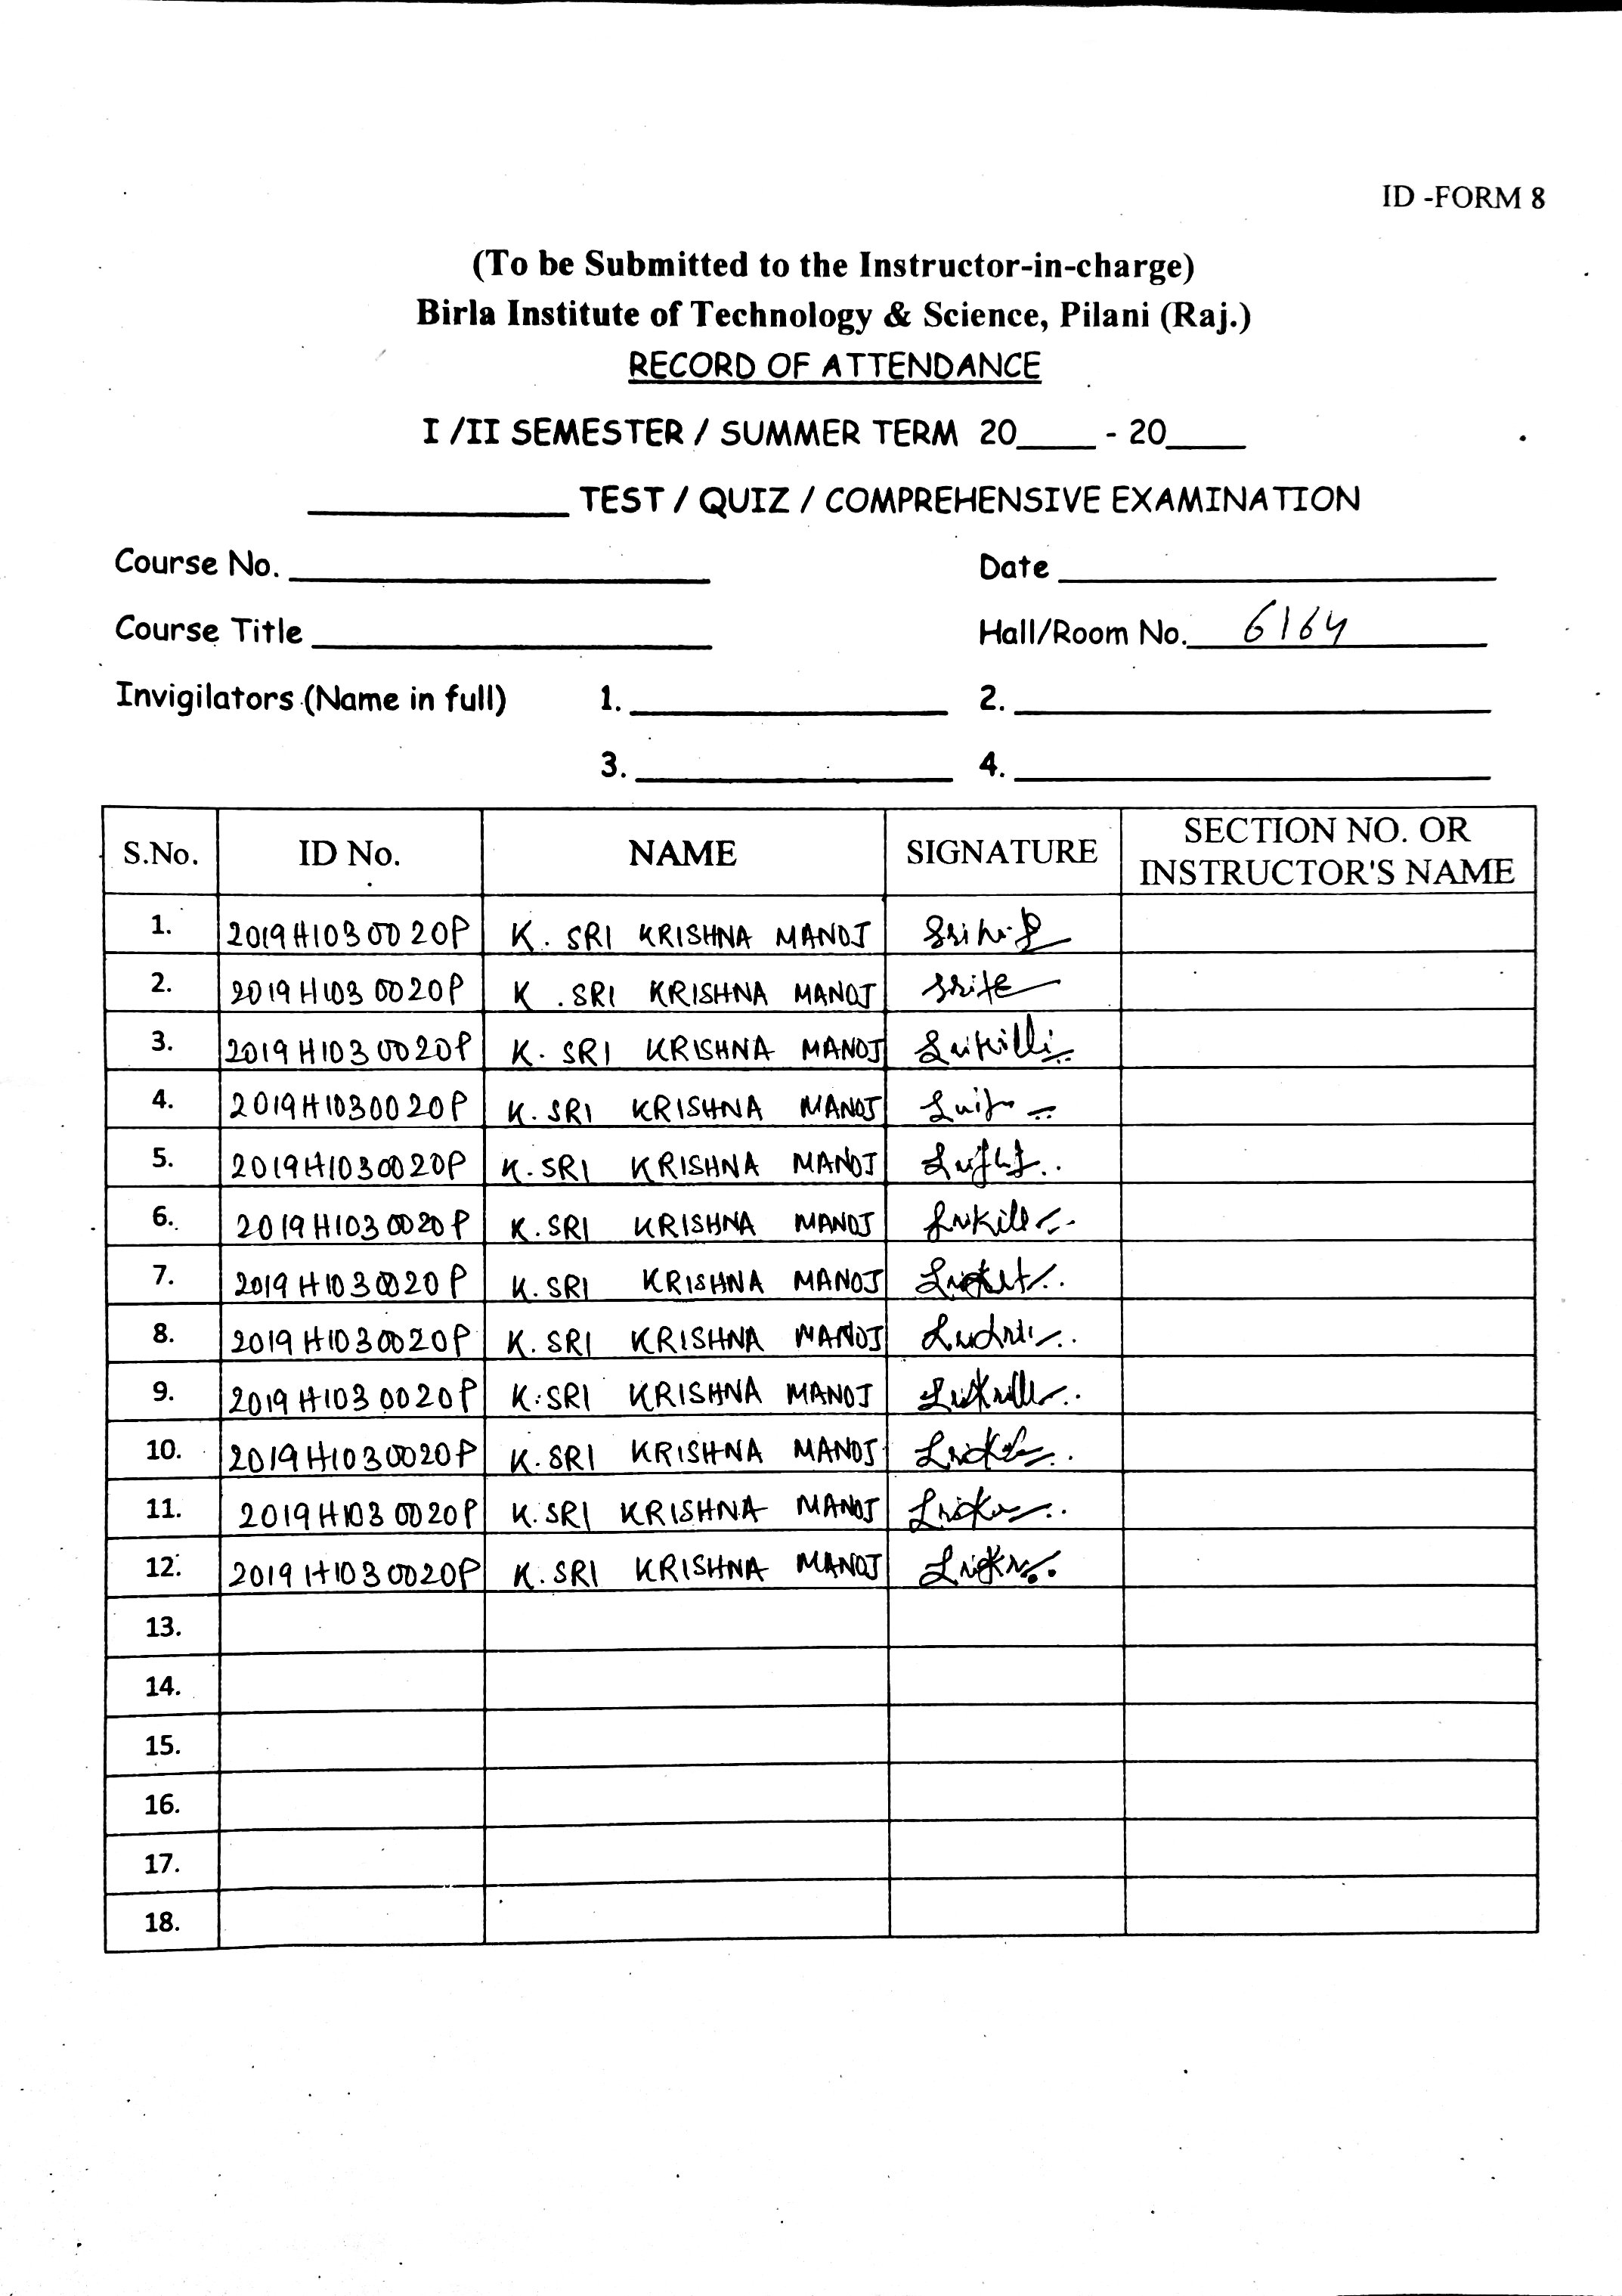 ID -FORM 8
(To be Submitted to the Instructor-in-charge)
Birla Institute of Technology & Science, Pilani (Raj.)
RECORD OF ATTENDANCE
I /II SEMESTER / SUMMER TERM 20____ - 20____
____________ TEST / QUIZ / COMPREHENSIVE EXAMINATION
Course No. ____________ Date ____________
Course Title ____________ Hall/Room No. 6164
Invigilators (Name in full) 1. ____________ 2. ____________
3. ____________ 4. ____________
S.No. ID No. NAME SIGNATURE SECTION NO. OR INSTRUCTOR'S NAME
1. 2019H1030020P K. SRI KRISHNA MANOJ
2. 2019H1030020P K. SRI KRISHNA MANOJ
3. 2019H1030020P K. SRI KRISHNA MANOJ
4. 2019H1030020P K. SRI KRISHNA MANOJ
5. 2019H1030020P K. SRI KRISHNA MANOJ
6. 2019H1030020P K. SRI KRISHNA MANOJ
7. 2019H1030020P K. SRI KRISHNA MANOJ
8. 2019H1030020P K. SRI KRISHNA MANOJ
9. 2019H1030020P K. SRI KRISHNA MANOJ
10. 2019H1030020P K. SRI KRISHNA MANOJ
11. 2019H1030020P K. SRI KRISHNA MANOJ
12. 2019H1030020P K. SRI KRISHNA MANOJ
13.
14.
15.
16.
17.
18.